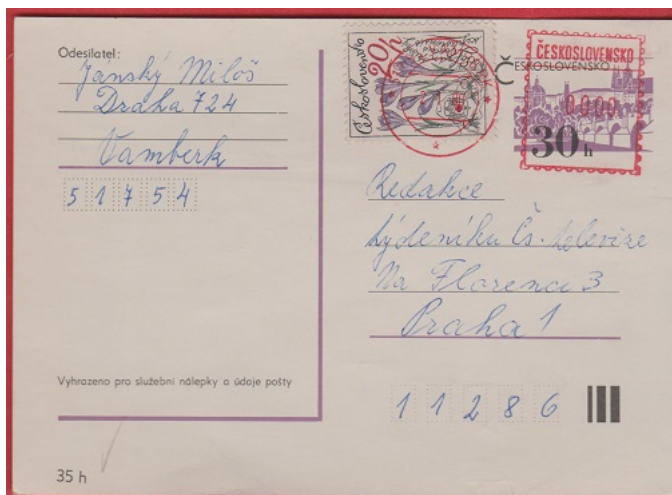 Odesílatel:
Jánský Miloš
Draha 724
Vamberk
51754
Vyhrazeno pro služební nálepky a údaje pošty
35 h
Československo
20h
ČESKOSLOVENSKO
ČESKOSLOVENSKO
0000
30 h
Redakce
týdeníku Čs. televize
Na Florenci 3
Praha 1
11286